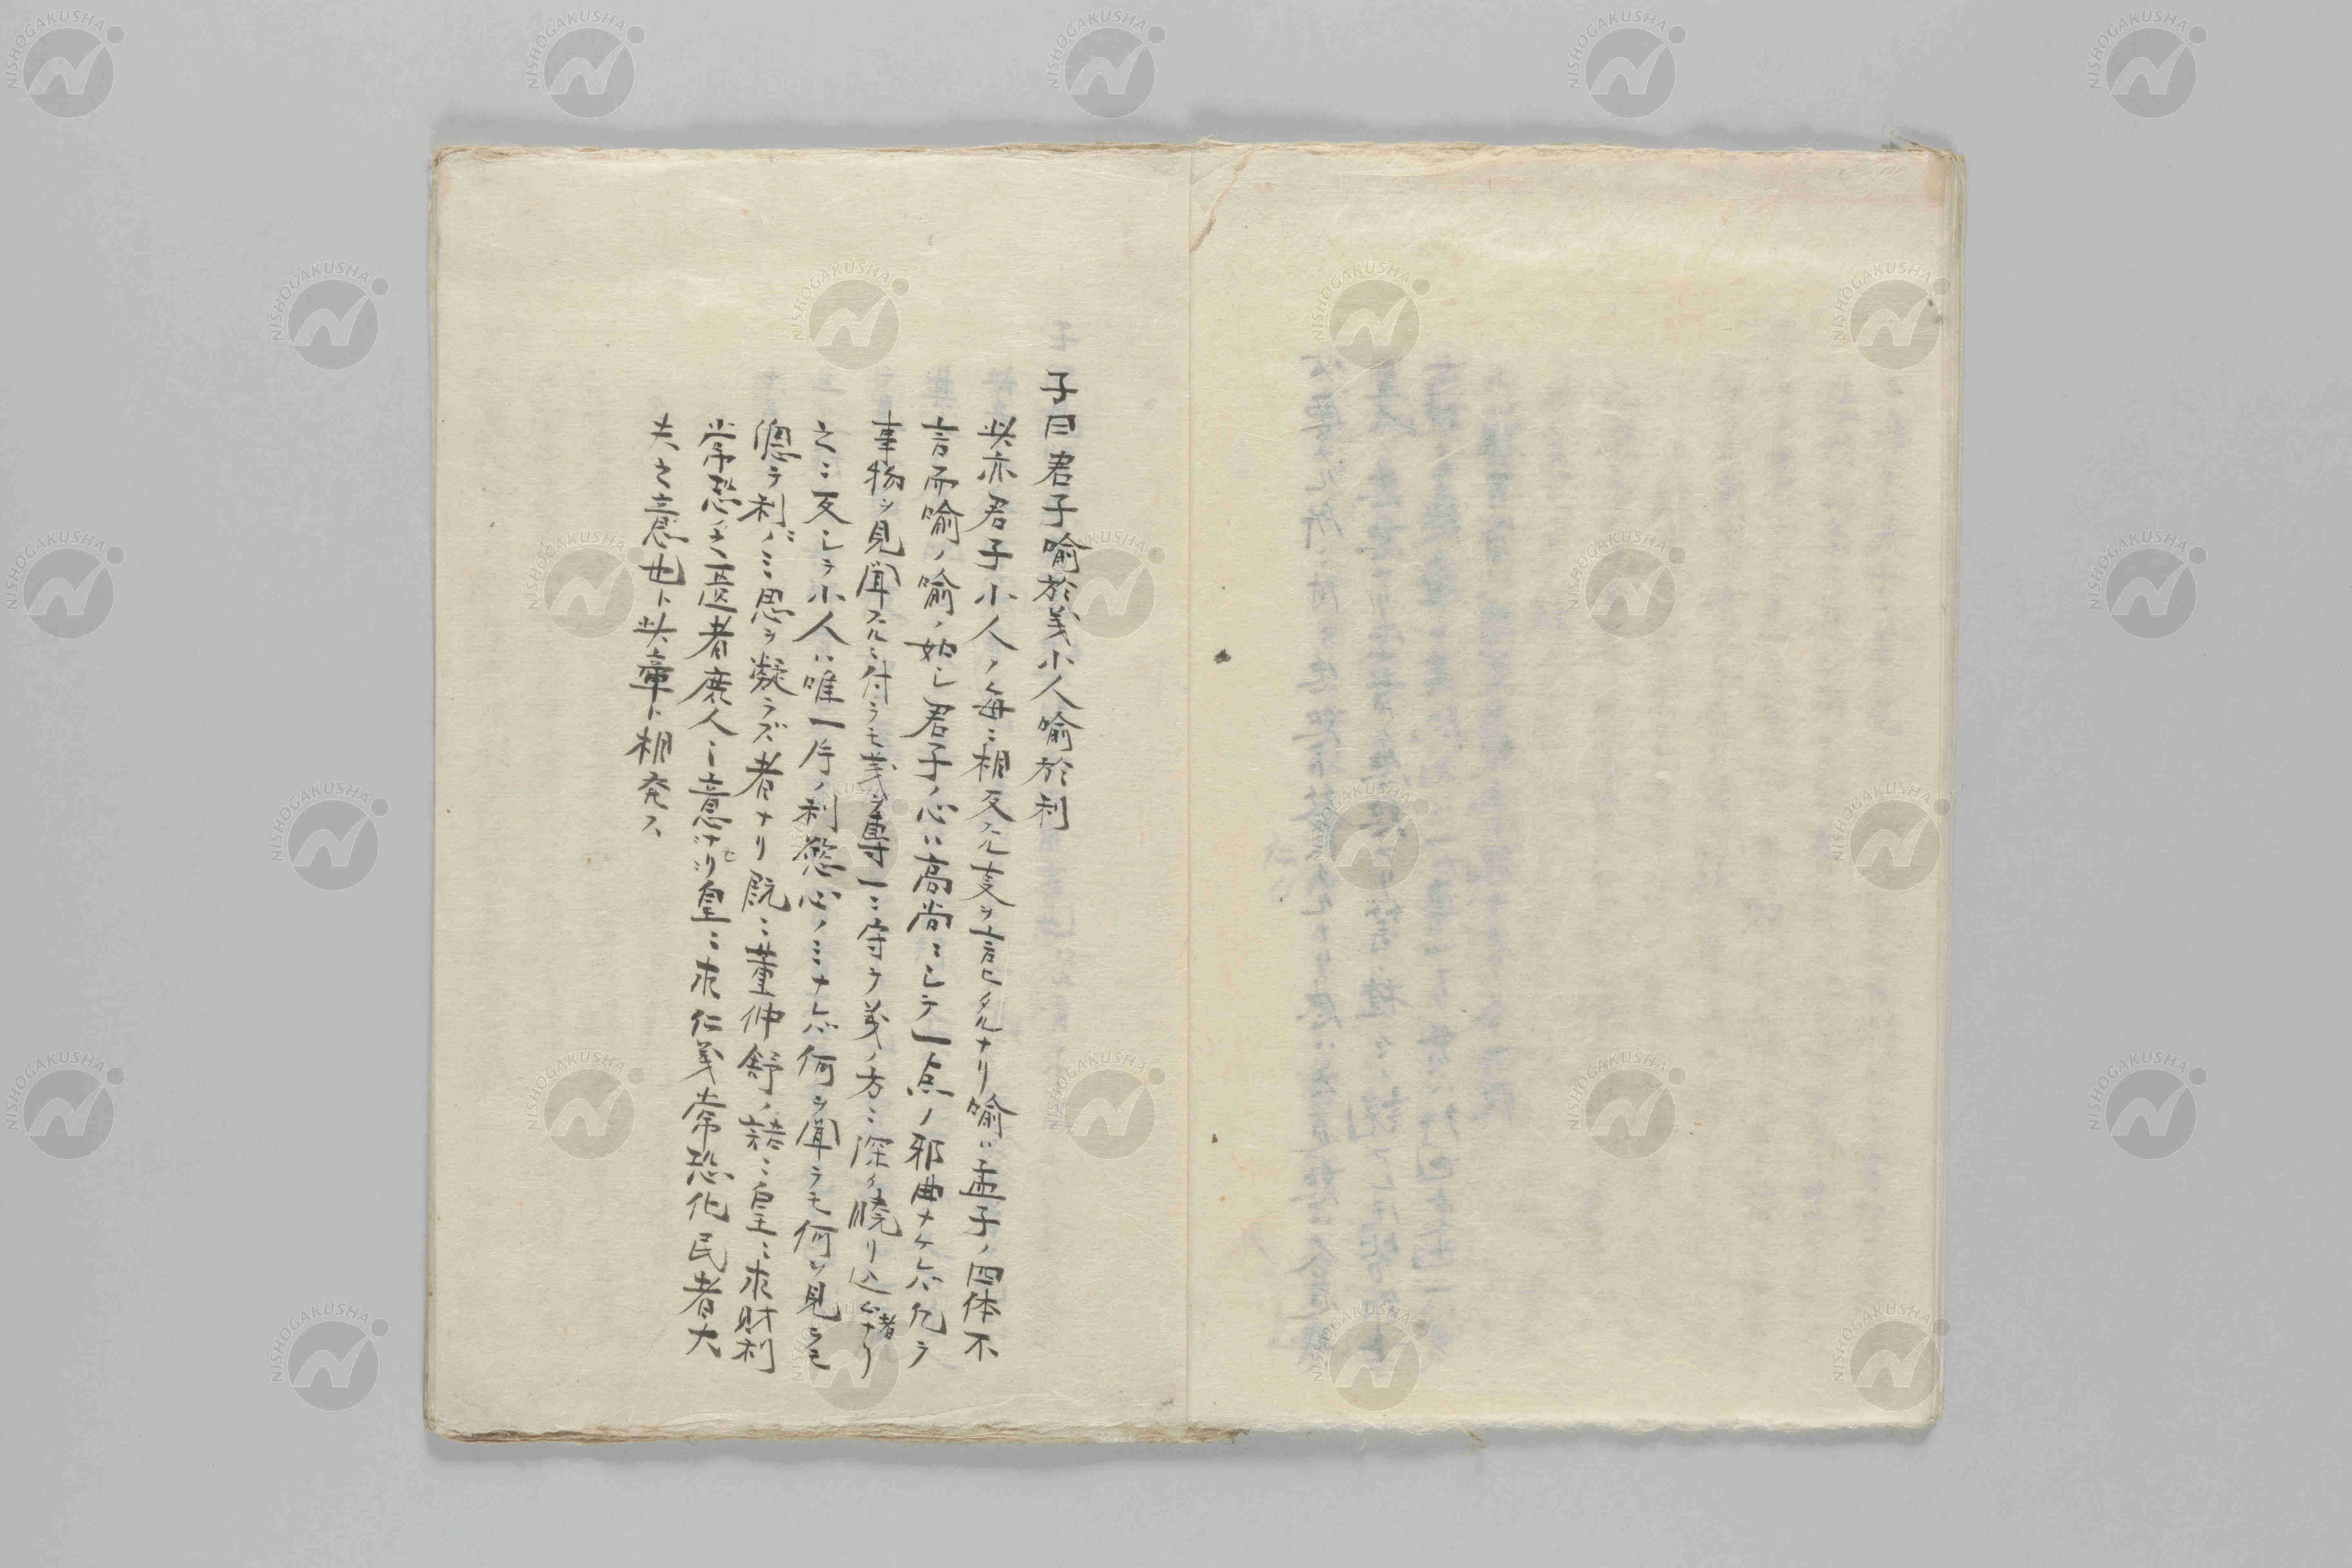 子曰君子喻於義小人喻於利
此亦君子小人ノ毎ニ相反スル事ヲ言ヒタルナリ喻ハ孟子ノ四体不
言而喻ノ喻ノ如シ君子ノ心ハ高尚ニシテ一点ノ邪曲ナケレバ凡テ
事物ヲ見聞スルニ付テモ義ヲ専一ニ守テ義ノ方ニ深ク暁リ込ム者ナリ
之ニ反シテ小人ハ唯一片ノ利慾心ノミナレバ何ヲ聞テモ何ヲ見テモ
總テ利バノミ思ヲ凝ラズ者ナリ既ニ董仲舒ノ語ニ皇ニ求財利
常恐乏匱者庶人之意ナリ皇ニ求仁義常恐化民者大
夫之意也ト此章ト相発ス
NISHOGAKUSHA